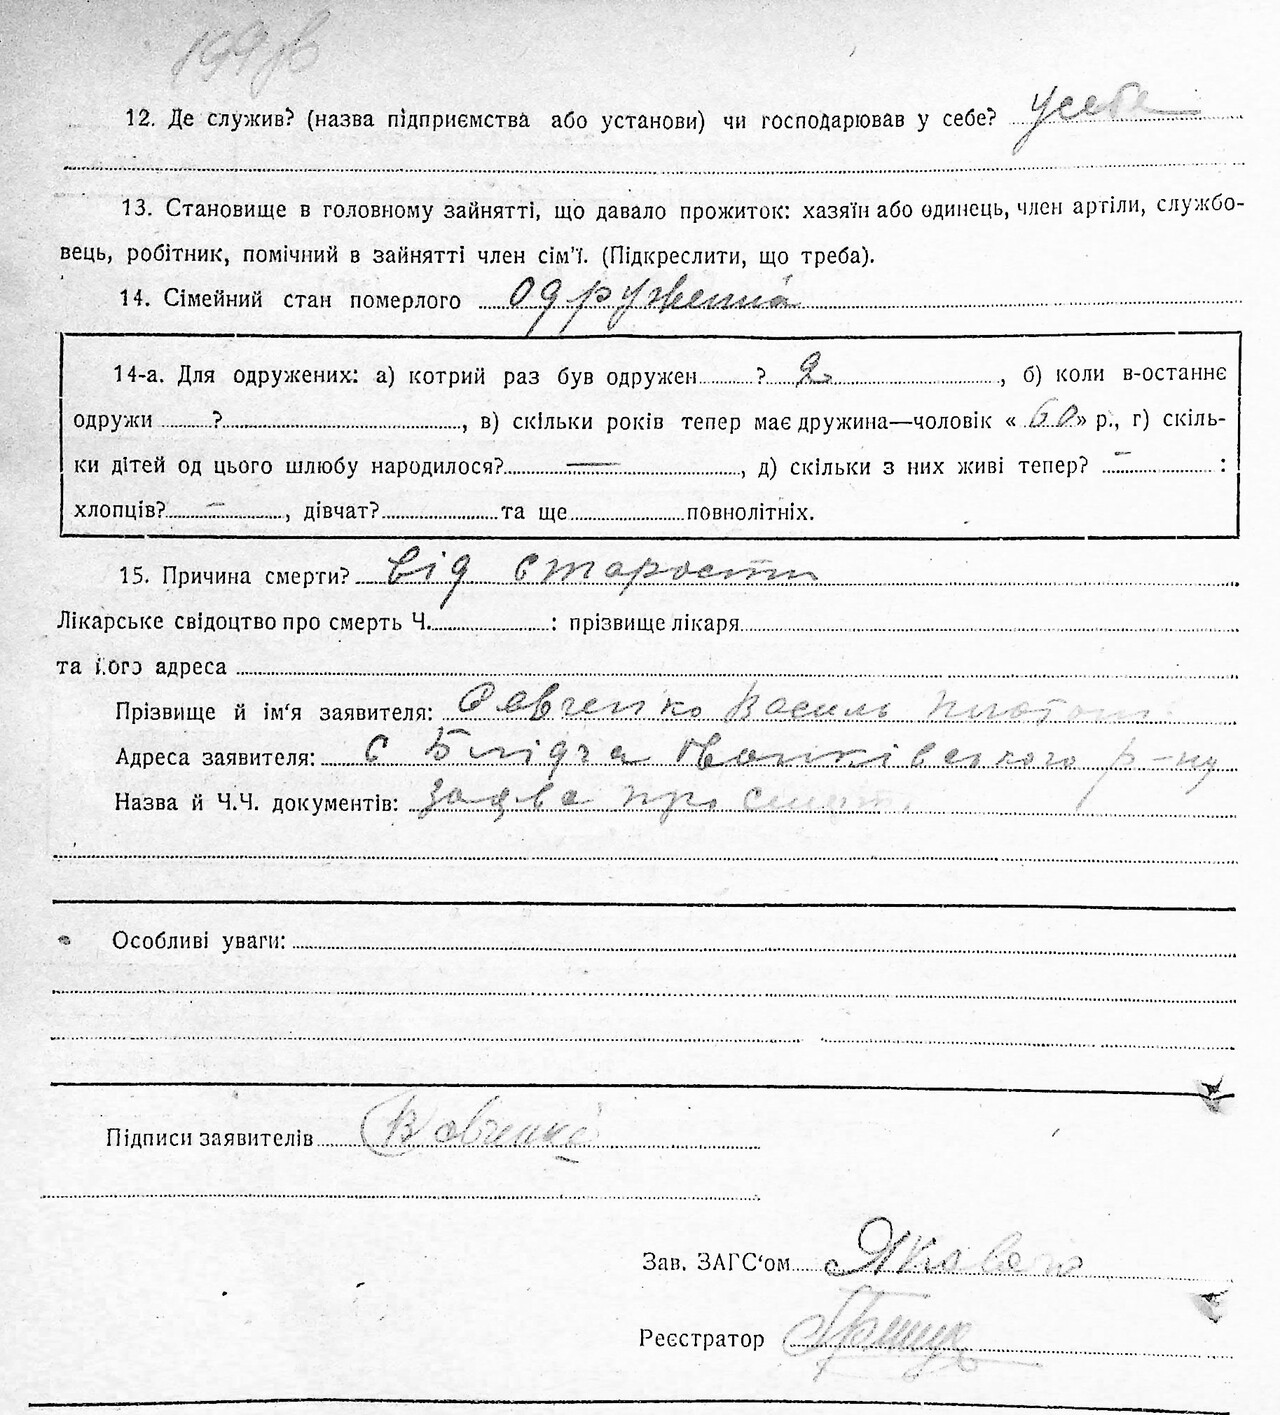 12. Де служив? (назва підприємства або установи) чи господарював у себе? у себе
13. Становище в головному зайнятті, що давало прожиток: хазяїн або одинець, член артілі, службо-
вець, робітник, помічний в зайнятті член сім'ї. (Підкреслити, що треба).
14. Сімейний стан померлого одружений
14-а. Для одружених: а) котрий раз був одружен ? 2, б) коли в-останнє
одружи ?, в) скільки років тепер має дружина—чоловік «60» р., г) скіль-
ки дітей од цього шлюбу народилося? —, д) скільки з них живі тепер? — :
хлопців? —, дівчат? та ще повнолітніх.
15. Причина смерти? від старости
Лікарське свідоцтво про смерть Ч. : прізвище лікаря
та його адреса
Прізвище й ім'я заявителя: Василь
Адреса заявителя: с Блідча р-ну
Назва й Ч.Ч. документів: про смерть
Особливі уваги:
Підписи заявителів
Зав. ЗАГС'ом
Реєстратор